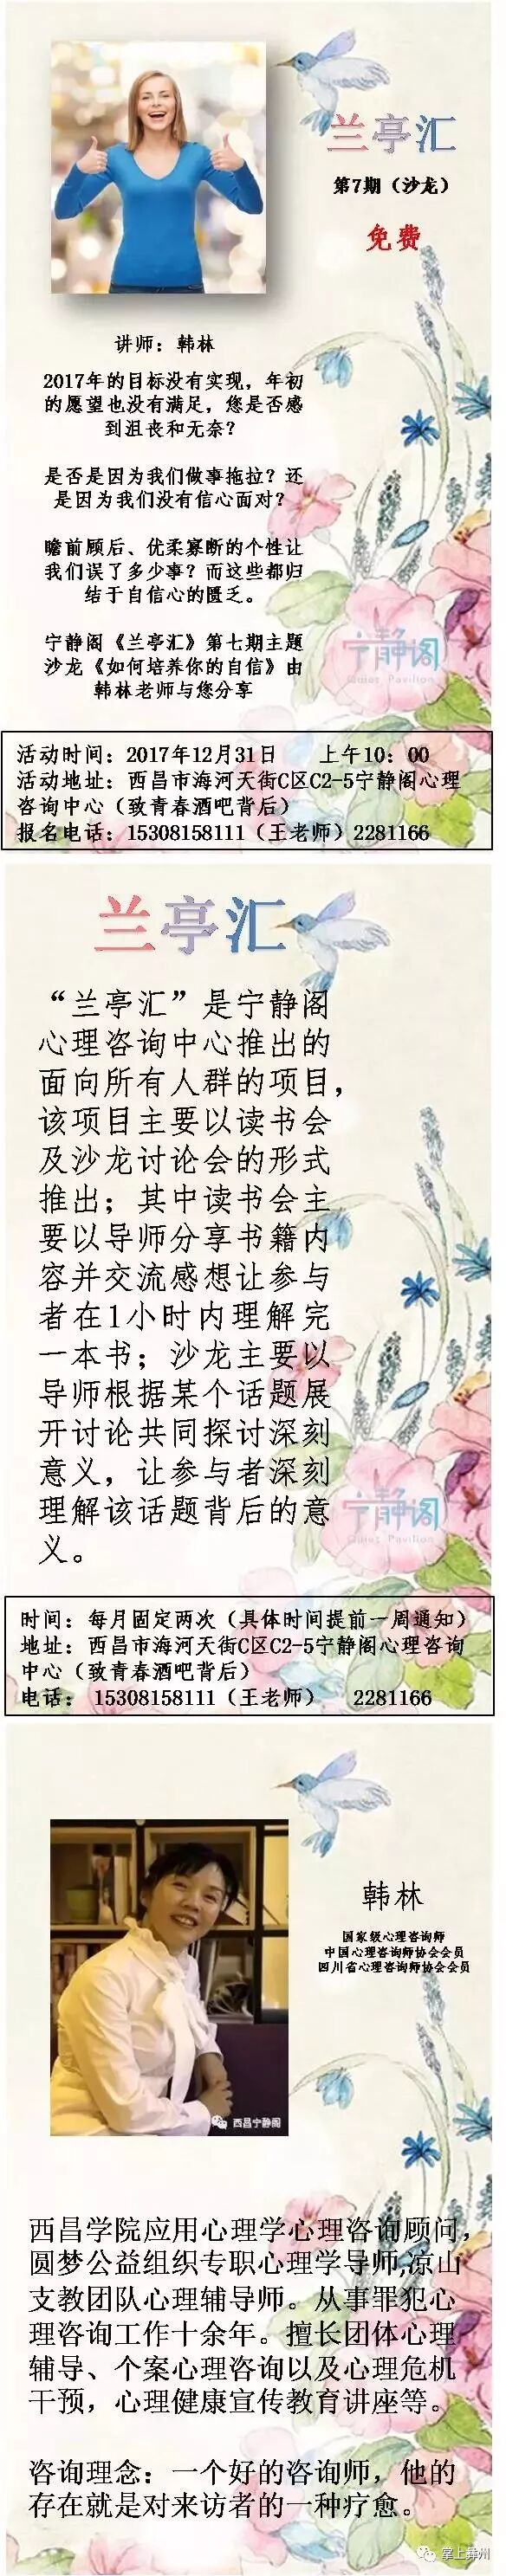 兰亭汇
第7期（沙龙）
免费
讲师：韩林
2017年的目标没有实现，年初
的愿望也没有满足，您是否感
到沮丧和无奈？
是否是因为我们做事拖拉？还
是因为我们没有信心面对？
瞻前顾后、优柔寡断的个性让
我们误了多少事？而这些都归
结于自信心的匮乏。
宁静阁《兰亭汇》第七期主题
沙龙《如何培养你的自信》由
韩林老师与您分享
宁静阁
Quiet Pavilion
活动时间：2017年12月31日 上午10：00
活动地址：西昌市海河天街C区C2-5宁静阁心理
咨询中心（致青春酒吧背后）
报名电话：15308158111（王老师）2281166
兰亭汇
“兰亭汇”是宁静阁
心理咨询中心推出的
面向所有人群的项目，
该项目主要以读书会
及沙龙讨论会的形式
推出；其中读书会主
要以导师分享书籍内
容并交流感想让参与
者在1小时内理解完
一本书；沙龙主要以
导师根据某个话题展
开讨论共同探讨深刻
意义，让参与者深刻
理解该话题背后的意
义。
宁静阁
Quiet Pavilion
时间：每月固定两次（具体时间提前一周通知）
地址：西昌市海河天街C区C2-5宁静阁心理咨询
中心（致青春酒吧背后）
电话： 15308158111（王老师） 2281166
韩林
国家级心理咨询师
中国心理咨询师协会会员
四川省心理咨询师协会会员
西昌宁静阁
西昌学院应用心理学心理咨询顾问，
圆梦公益组织专职心理学导师,凉山
支教团队心理辅导师。从事罪犯心
理咨询工作十余年。擅长团体心理
辅导、个案心理咨询以及心理危机
干预，心理健康宣传教育讲座等。
咨询理念：一个好的咨询师，他的
存在就是对来访者的一种疗愈。
掌上彝州